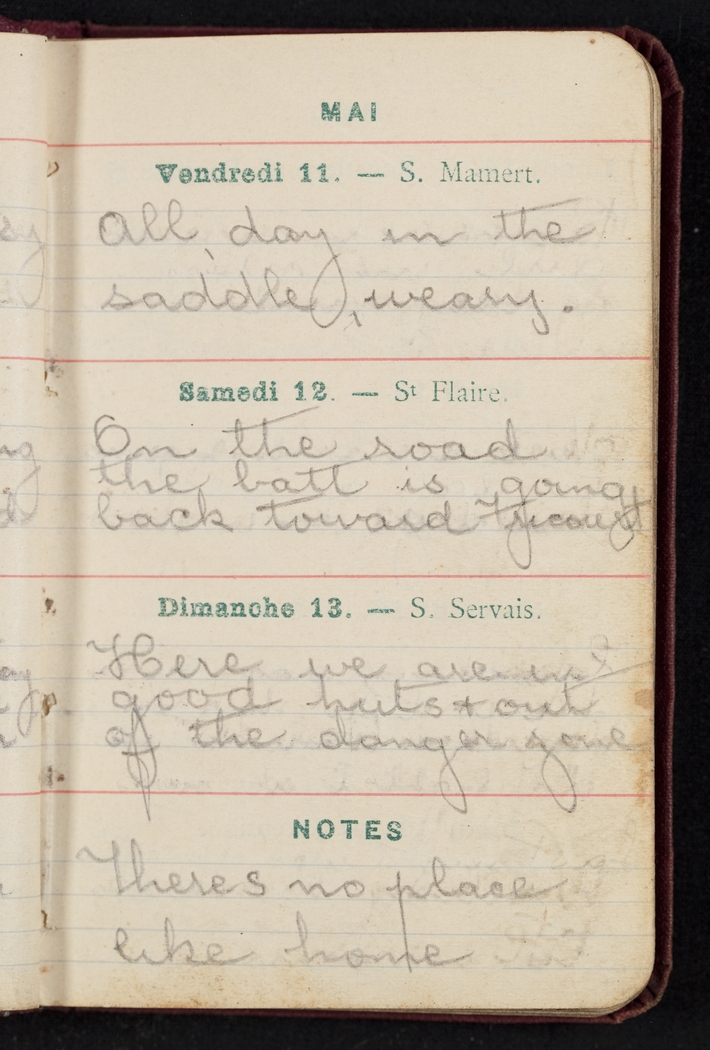 MAI
Vendredi 11. — S. Mamert.
All day in the
saddle, weary.
Samedi 12. — St Flaire.
On the road
the batt is going
back toward Fricourt
Dimanche 13. — S. Servais.
Here we are in
good huts & out
of the danger zone
NOTES
Theres no place
like home